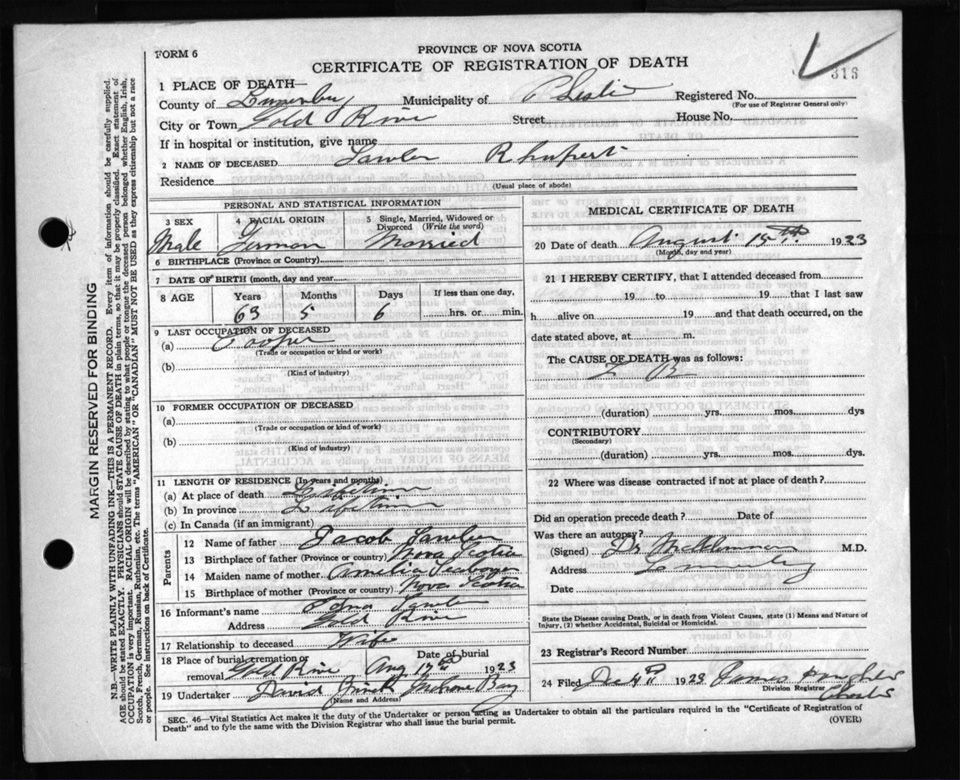 FORM 6
PROVINCE OF NOVA SCOTIA
CERTIFICATE OF REGISTRATION OF DEATH
316
1 PLACE OF DEATH—
County of Lunenburg Municipality of Registered No.
(For use of Registrar General only)
City or Town Gold River Street House No.
If in hospital or institution, give name
2 NAME OF DECEASED Lawler Rhupert
Residence
(Usual place of abode)
PERSONAL AND STATISTICAL INFORMATION
3 SEX 4 RACIAL ORIGIN 5 Single, Married, Widowed or Divorced (Write the word)
Male German Married
6 BIRTHPLACE (Province or Country)
7 DATE OF BIRTH (month, day and year)
8 AGE Years Months Days If less than one day,
63 5 6 hrs. or min.
9 LAST OCCUPATION OF DECEASED
(a) Cooper
(Trade or occupation or kind or work)
(b)
(Kind of industry)
10 FORMER OCCUPATION OF DECEASED
(a)
(Trade or occupation or kind or work)
(b)
(Kind of industry)
11 LENGTH OF RESIDENCE (In years and months)
(a) At place of death Life time
(b) In province Life time
(c) In Canada (if an immigrant)
Parents
12 Name of father Jacob Lawler
13 Birthplace of father (Province or country) Nova Scotia
14 Maiden name of mother Amelia
15 Birthplace of mother (Province or country) Nova Scotia
16 Informant's name Edna Lawler
Address Gold River
17 Relationship to deceased Wife
18 Place of burial, cremation or removal Gold River Date of burial Aug 17 1923
19 Undertaker David Mahone Bay
(Name and Address)
MEDICAL CERTIFICATE OF DEATH
20 Date of death August 15th 1923
(Month, day and year)
21 I HEREBY CERTIFY, that I attended deceased from
19 to 19 that I last saw
h alive on 19 and that death occurred, on the
date stated above, at m.
The CAUSE OF DEATH was as follows:
T B
(duration) yrs. mos. dys
CONTRIBUTORY
(Secondary)
(duration) yrs. mos. dys.
22 Where was disease contracted if not at place of death?
Did an operation precede death? Date of
Was there an autopsy?
(Signed) Dr M.D.
Address
Date
State the Disease causing Death, or in death from Violent Causes, state (1) Means and Nature of
Injury, (2) whether Accidental, Suicidal or Homicidal.
23 Registrar's Record Number
24 Filed Dec 4th 1928 James
Division Registrar
SEC. 46—Vital Statistics Act makes it the duty of the Undertaker or person acting as Undertaker to obtain all the particulars required in the "Certificate of Registration of
Death" and to fyle the same with the Division Registrar who shall issue the burial permit. (OVER)
MARGIN RESERVED FOR BINDING
N.B.—WRITE PLAINLY WITH UNFADING INK—THIS IS A PERMANENT RECORD. Every item of information should be carefully supplied.
AGE should be stated EXACTLY. PHYSICIANS should STATE CAUSE OF DEATH in plain terms, so that it may be properly classified. Exact statement of
OCCUPATION is very important. RACIAL ORIGIN will be described by stating to what people or tongue the deceased person belonged whether English, Irish,
Scotch, French, German, Russian, Ruthenian, etc. The terms "AMERICAN" or "CANADIAN" MUST NOT BE USED as they express citizenship but not a race
or people. See instructions on back of Certificate.